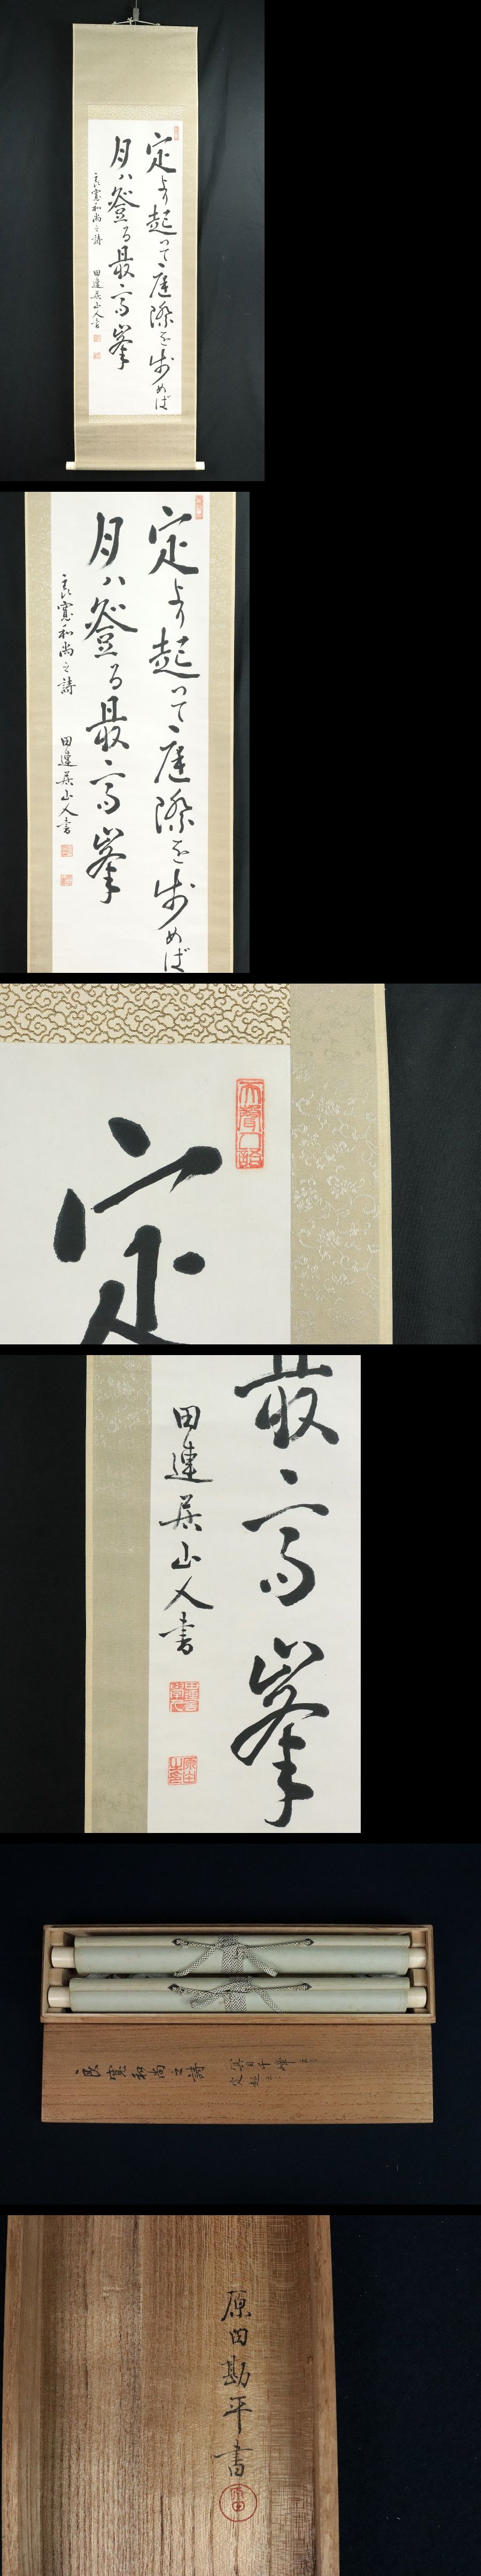 定より起って庭際を歩めば
月ハ登る最高峯
良寛和尚之詩
田連居山人書
定より起って庭際を歩めば
月ハ登る最高峯
良寛和尚之詩
田連居山人書
定
最高峯
田連居山人書
良寛和尚之詩
原田勘平書
原田